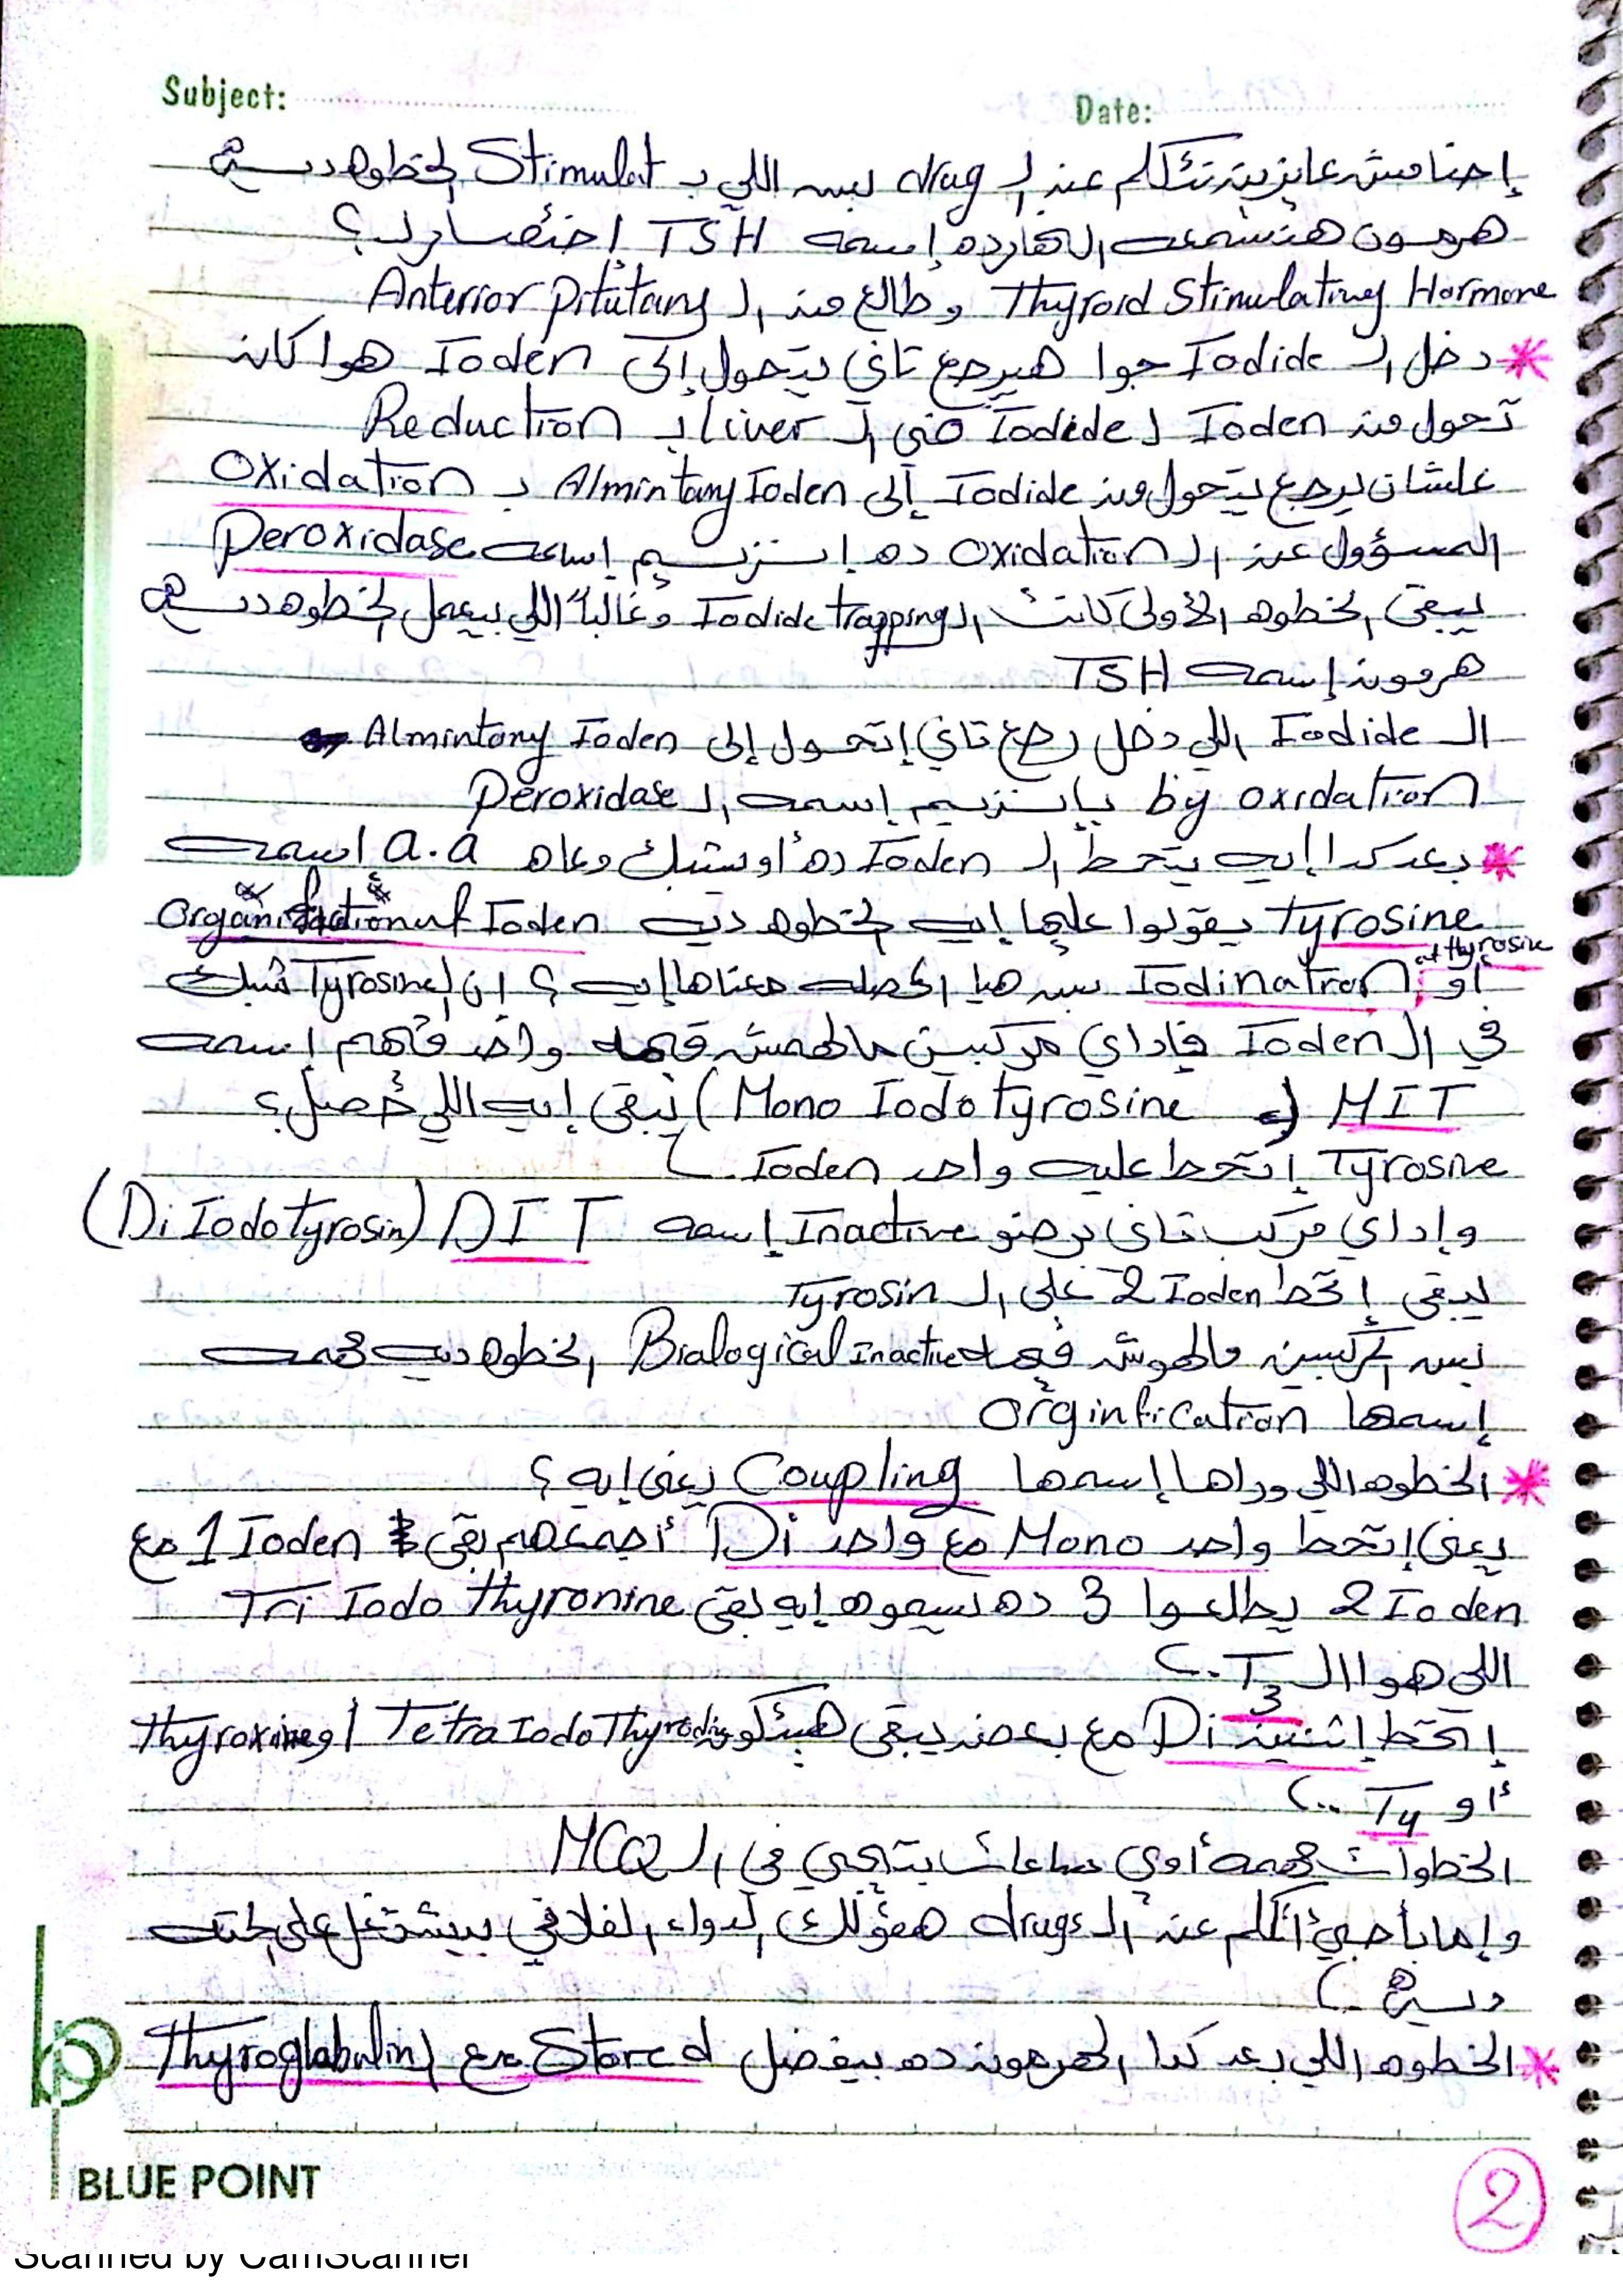 Subject: Date:
إحنا مش عايزين نتكلم عن الـ drug بس اللي بـ Stimulat الخطوه ديه
هرمون هنسمعه النهارده إسمه TSH إختصار لـ ؟
Thyroid Stimulating Hormone وطالع من الـ Anterior pitutary
* دخل الـ Iodide جوا هيرجع تاني يتحول إلى Ioden هوا كان
تحول من Ioden لـ Iodide في الـ liver بـ Reduction
علشان يرجع يتحول من Iodide إلى Almintary Ioden بـ Oxidation
المسؤول عن الـ oxidation ده إنزيم إسمه Peroxidase
يبقى الخطوه الأولى كانت الـ Iodide trapping وغالباً اللي بيعمل الخطوه ديه
هرمون إسمه TSH
الـ Iodide اللي دخل رجع تاني إتحول إلى Almintary Ioden
by oxidation بإنزيم إسمه الـ Peroxidase
* بعد كدا إيه يتحط الـ Ioden ده أو يشبك معاه a.a اسمه
Tyrosine يقولوا عليها إيه الخطوه ديه Organification of Ioden
أو Iodination of thyrosine بس هيا المحصله معناها إيه ؟ إن الـ Tyrosine شبك
في الـ Ioden فإداي مركبين مالهمش قيمه واحد فيهم إسمه
MIT (Mono Iodo tyrosine) يبقى إيه اللي حصل؟
Tyrosine إتحط عليه واحد Ioden
وإداي مركب تاني برضو Inactive إسمه DIT (Di Iodo tyrosin)
يبقى إتحط 2 Ioden على الـ Tyrosin
بس المركبين مالهوش قيمه Bialogical Inactive الخطوه ديه مهمه
إسمها Orginfication
* الخطوه اللي وراها إسمها Coupling يعني إيه ؟
يعني إتحط واحد Mono مع واحد Di أجمعهم بقى 1 Ioden مع
2 Ioden يطلعوا 3 ده نسموه إيه بقى Tri Iodo thyronine
اللي هوا الـ T3
إتحط إتنين Di مع بعض يبقى هيتكون Tetra Iodo Thyrodin أو Thyroxine
أو T4
الخطوات مهمه أوي ساعات بتيجي في الـ MCQ
وإما بأجي أتكلم عن الـ drugs هقولك الدواء الفلاني بيشتغل على الحته
ديه
* الخطوه اللي بعد كدا الهرمون ده بيفضل Stored مع الـ Thyroglabulin
BLUE POINT
2
Scanned by CamScanner